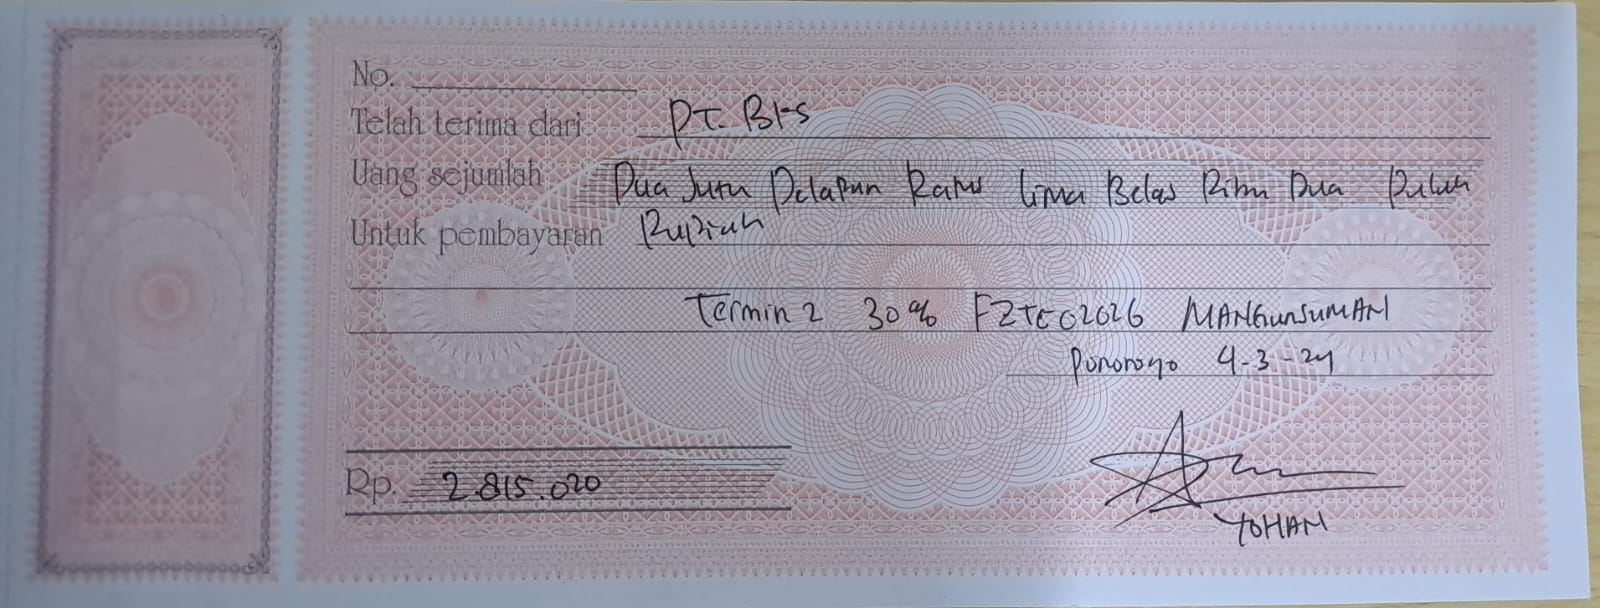 No.
Telah terima dari PT. BKS
Uang sejumlah Dua Juta Delapan Ratus Lima Belas Ribu Dua Puluh
Untuk pembayaran Rupiah
Termin 2 30% FZTE02026 MANGUNSUMAN
Ponorogo 4-3-24
Rp. 2.815.020
YOHAN